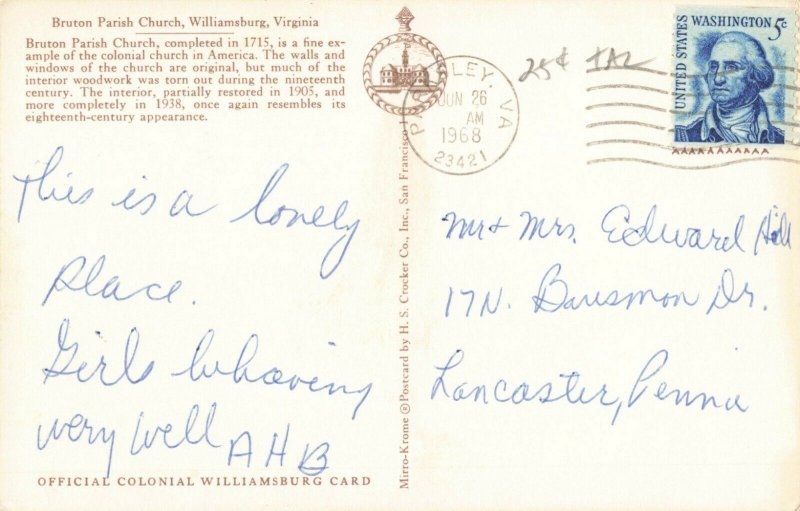 Bruton Parish Church, Williamsburg, Virginia
Bruton Parish Church, completed in 1715, is a fine ex-
ample of the colonial church in America. The walls and
windows of the church are original, but much of the
interior woodwork was torn out during the nineteenth
century. The interior, partially restored in 1905, and
more completely in 1938, once again resembles its
eighteenth-century appearance.
This is a lonely
place.
Girls behaving
very well
AHB
OFFICIAL COLONIAL WILLIAMSBURG CARD
Mirro-Krome ® Postcard by H. S. Crocker Co., Inc., San Francisco-1
PARKSLEY, VA
JUN 26
AM
1968
23421
25¢
UNITED STATES
WASHINGTON 5c
Mr + Mrs. Edward Hill
17 N. Dr.
Lancaster, Penna